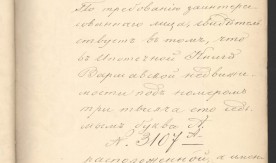 По требованію заинтере-
сованнаго лица, свидѣтель-
ствуетъ въ томъ, что
въ Ипотечной Книгѣ
Варшавской недвижи-
мости подъ номеромъ
три тысяча сто седь-
мымъ буква А.
№ 3107 А
расположенной, а имен-